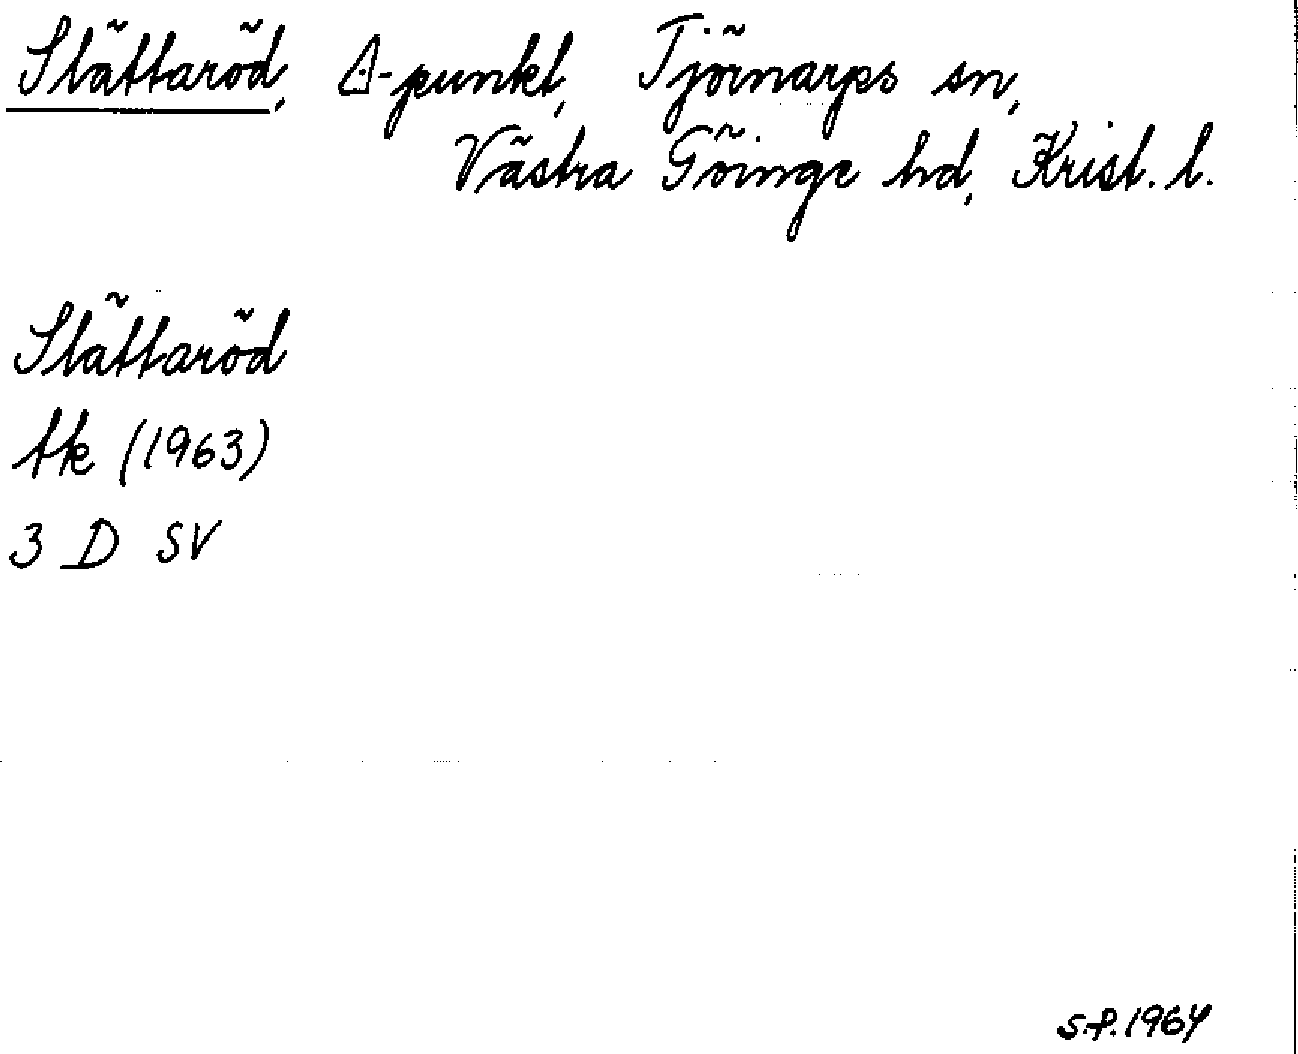 Slättaröd, △-punkt, Tjörnarps sn,
Västra Göinge hd, Krist. l.
Slättaröd
tk (1963)
3 D SV
S.P. 1964